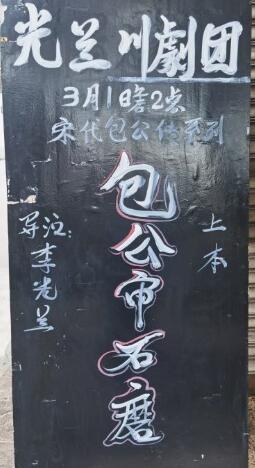 光兰川劇团
3月1日2点
宋代包公传系列
上本
包公审石磨
导演:李光兰